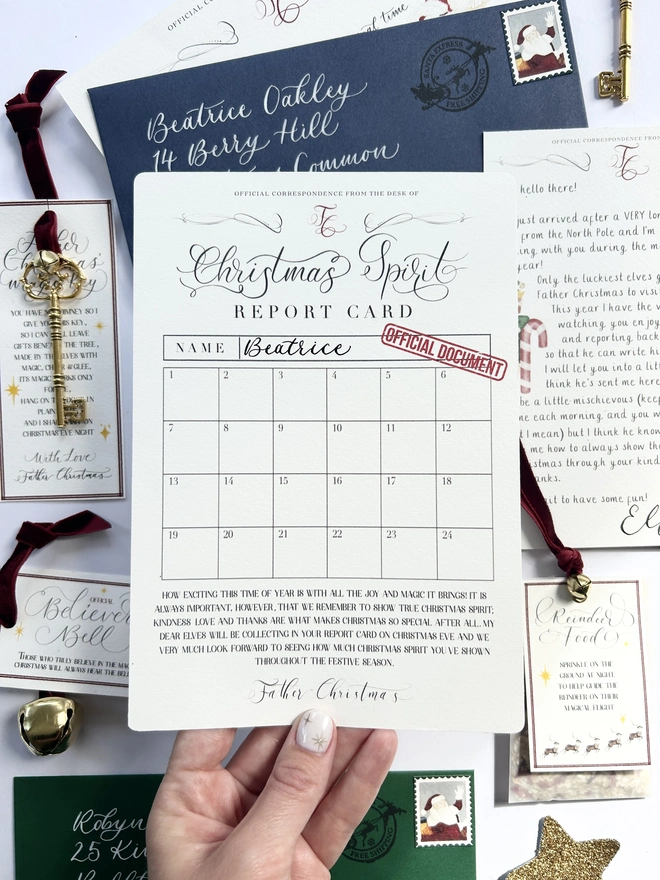 OFFICIAL CORRESPONDENCE
real time
SANTA EXPRESS
FREE SHIPPING
Beatrice Oakley
14 Berry Hill
Common
OFFICIAL CORRESPONDENCE FROM THE DESK OF
FC
Christmas Spirit
REPORT CARD
NAME Beatrice
OFFICIAL DOCUMENT
1 2 3 4 5 6
7 8 9 10 11 12
13 14 15 16 17 18
19 20 21 22 23 24
HOW EXCITING THIS TIME OF YEAR IS WITH ALL THE JOY AND MAGIC IT BRINGS! IT IS
ALWAYS IMPORTANT, HOWEVER, THAT WE REMEMBER TO SHOW TRUE CHRISTMAS SPIRIT;
KINDNESS LOVE AND THANKS ARE WHAT MAKES CHRISTMAS SO SPECIAL AFTER ALL. MY
DEAR ELVES WILL BE COLLECTING IN YOUR REPORT CARD ON CHRISTMAS EVE AND WE
VERY MUCH LOOK FORWARD TO SEEING HOW MUCH CHRISTMAS SPIRIT YOU'VE SHOWN
THROUGHOUT THE FESTIVE SEASON.
Father Christmas
Father
Christmas'
KEY
YOU HAVE CHIMNEY SO I
GIVE YOU THIS KEY,
SO I CAN LEAVE
GIFTS BENEATH THE TREE,
MADE BY THE ELVES WITH
MAGIC, GLEE,
IT'S MAGIC WORKS ONLY
FOR
HANG ON
PLAIN
AND I SHALL
CHRISTMAS EVE NIGHT
With Love
Father Christmas
OFFICIAL
Believer
Bell
THOSE WHO TRULY BELIEVE IN THE MAGIC
CHRISTMAS WILL ALWAYS HEAR THE BELL
OFFICIAL CORRESPONDENCE FROM
FC
hello there!
just arrived after a VERY
from the North Pole and I'm
with you during the
year!
Only the luckiest elves
Father Christmas to
This year I have the
watching, you enjoy
and reporting back
so that he can write
I will let you into a
think he's sent me here
be a little mischievous (keep
me each morning, and you
I mean) but I think he know
me how to always show
through your
to have some fun!
Reindeer
Food
SPRINKLE ON THE
GROUND AT NIGHT
TO HELP GUIDE THE
REINDEER ON THEIR
MAGICAL FLIGHT
Robyn
25
FREE SHIPPING